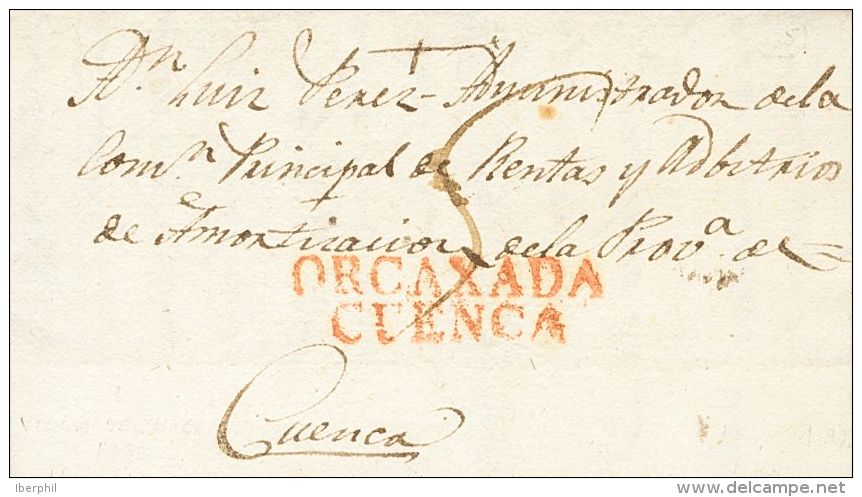 Dn. Luiz Perez Administrador de la
Comn. Principal de Rentas y Adbitrios
de Amortizacion de la Prova. de
ORCAXADA
CUENCA
Cuenca
Iberphil
www.delcampe.net